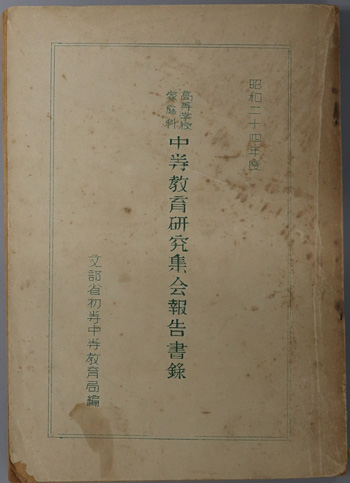 昭和二十四年度
高等学校
家庭科
中等教育研究集会報告書録
文部省初等中等教育局編